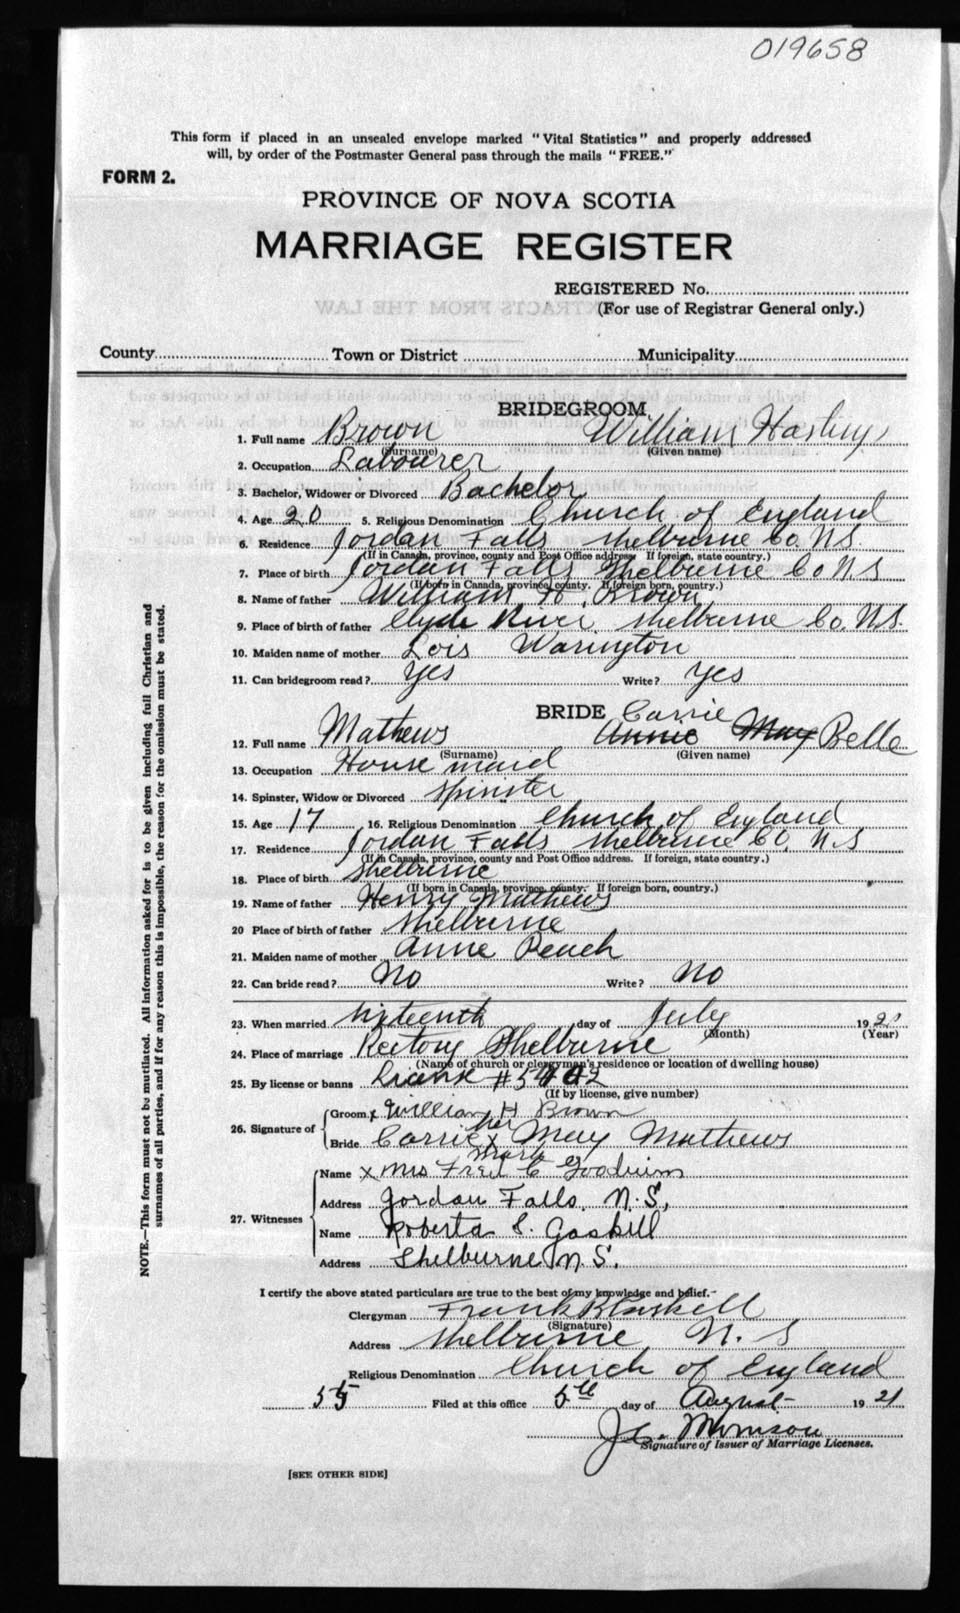 019658
This form if placed in an unsealed envelope marked "Vital Statistics" and properly addressed
will, by order of the Postmaster General pass through the mails "FREE."
FORM 2.
PROVINCE OF NOVA SCOTIA
MARRIAGE REGISTER
REGISTERED No.
(For use of Registrar General only.)
EXTRACTS FROM THE LAW
County Town or District Municipality
BRIDEGROOM
1. Full name Brown William
(Surname) (Given name)
2. Occupation Labourer
3. Bachelor, Widower or Divorced Bachelor
4. Age 20 5. Religious Denomination Church of England
6. Residence Jordan Falls Shelburne Co N.S.
(If in Canada, province, county and Post Office address. If foreign, state country.)
7. Place of birth Jordan Falls Shelburne Co N S
(If born in Canada, province, county. If foreign born, country.)
8. Name of father William H. Brown
9. Place of birth of father Clyde River Shelburne Co. N.S.
10. Maiden name of mother Lois
11. Can bridegroom read? Yes Write? Yes
BRIDE Carrie
12. Full name Mathews Annie May Belle
(Surname) (Given name)
13. Occupation House maid
14. Spinster, Widow or Divorced Spinster
15. Age 17 16. Religious Denomination Church of England
17. Residence Jordan Falls Shelburne Co. N.S
(If in Canada, province, county and Post Office address. If foreign, state country.)
18. Place of birth Shelburne
(If born in Canada, province, county. If foreign born, country.)
19. Name of father Henry Mathews
20 Place of birth of father Shelburne
21. Maiden name of mother Anne
22. Can bride read? No Write? No
23. When married day of July 1921
(Month) (Year)
24. Place of marriage Rectory Shelburne
(Name of church or clergyman's residence or location of dwelling house)
25. By license or banns
(If by license, give number)
26. Signature of Groom x William H Brown
her
Bride Carrie x May Mathews
mark
27. Witnesses Name x Mrs Fred C
Address Jordan Falls. N.S.
Name Roberta S. Gaskill
Address Shelburne N.S.
I certify the above stated particulars are true to the best of my knowledge and belief.
Clergyman Frank
(Signature)
Address Shelburne N. S
Religious Denomination Church of England
55 Filed at this office 5th day of August 1921
J. C. Morrison
Signature of Issuer of Marriage Licenses.
[SEE OTHER SIDE]
NOTE.—This form must not be mutilated. All information asked for is to be given including full Christian and
surnames of all parties, and if for any reason this is impossible, the reason for the omission must be stated.